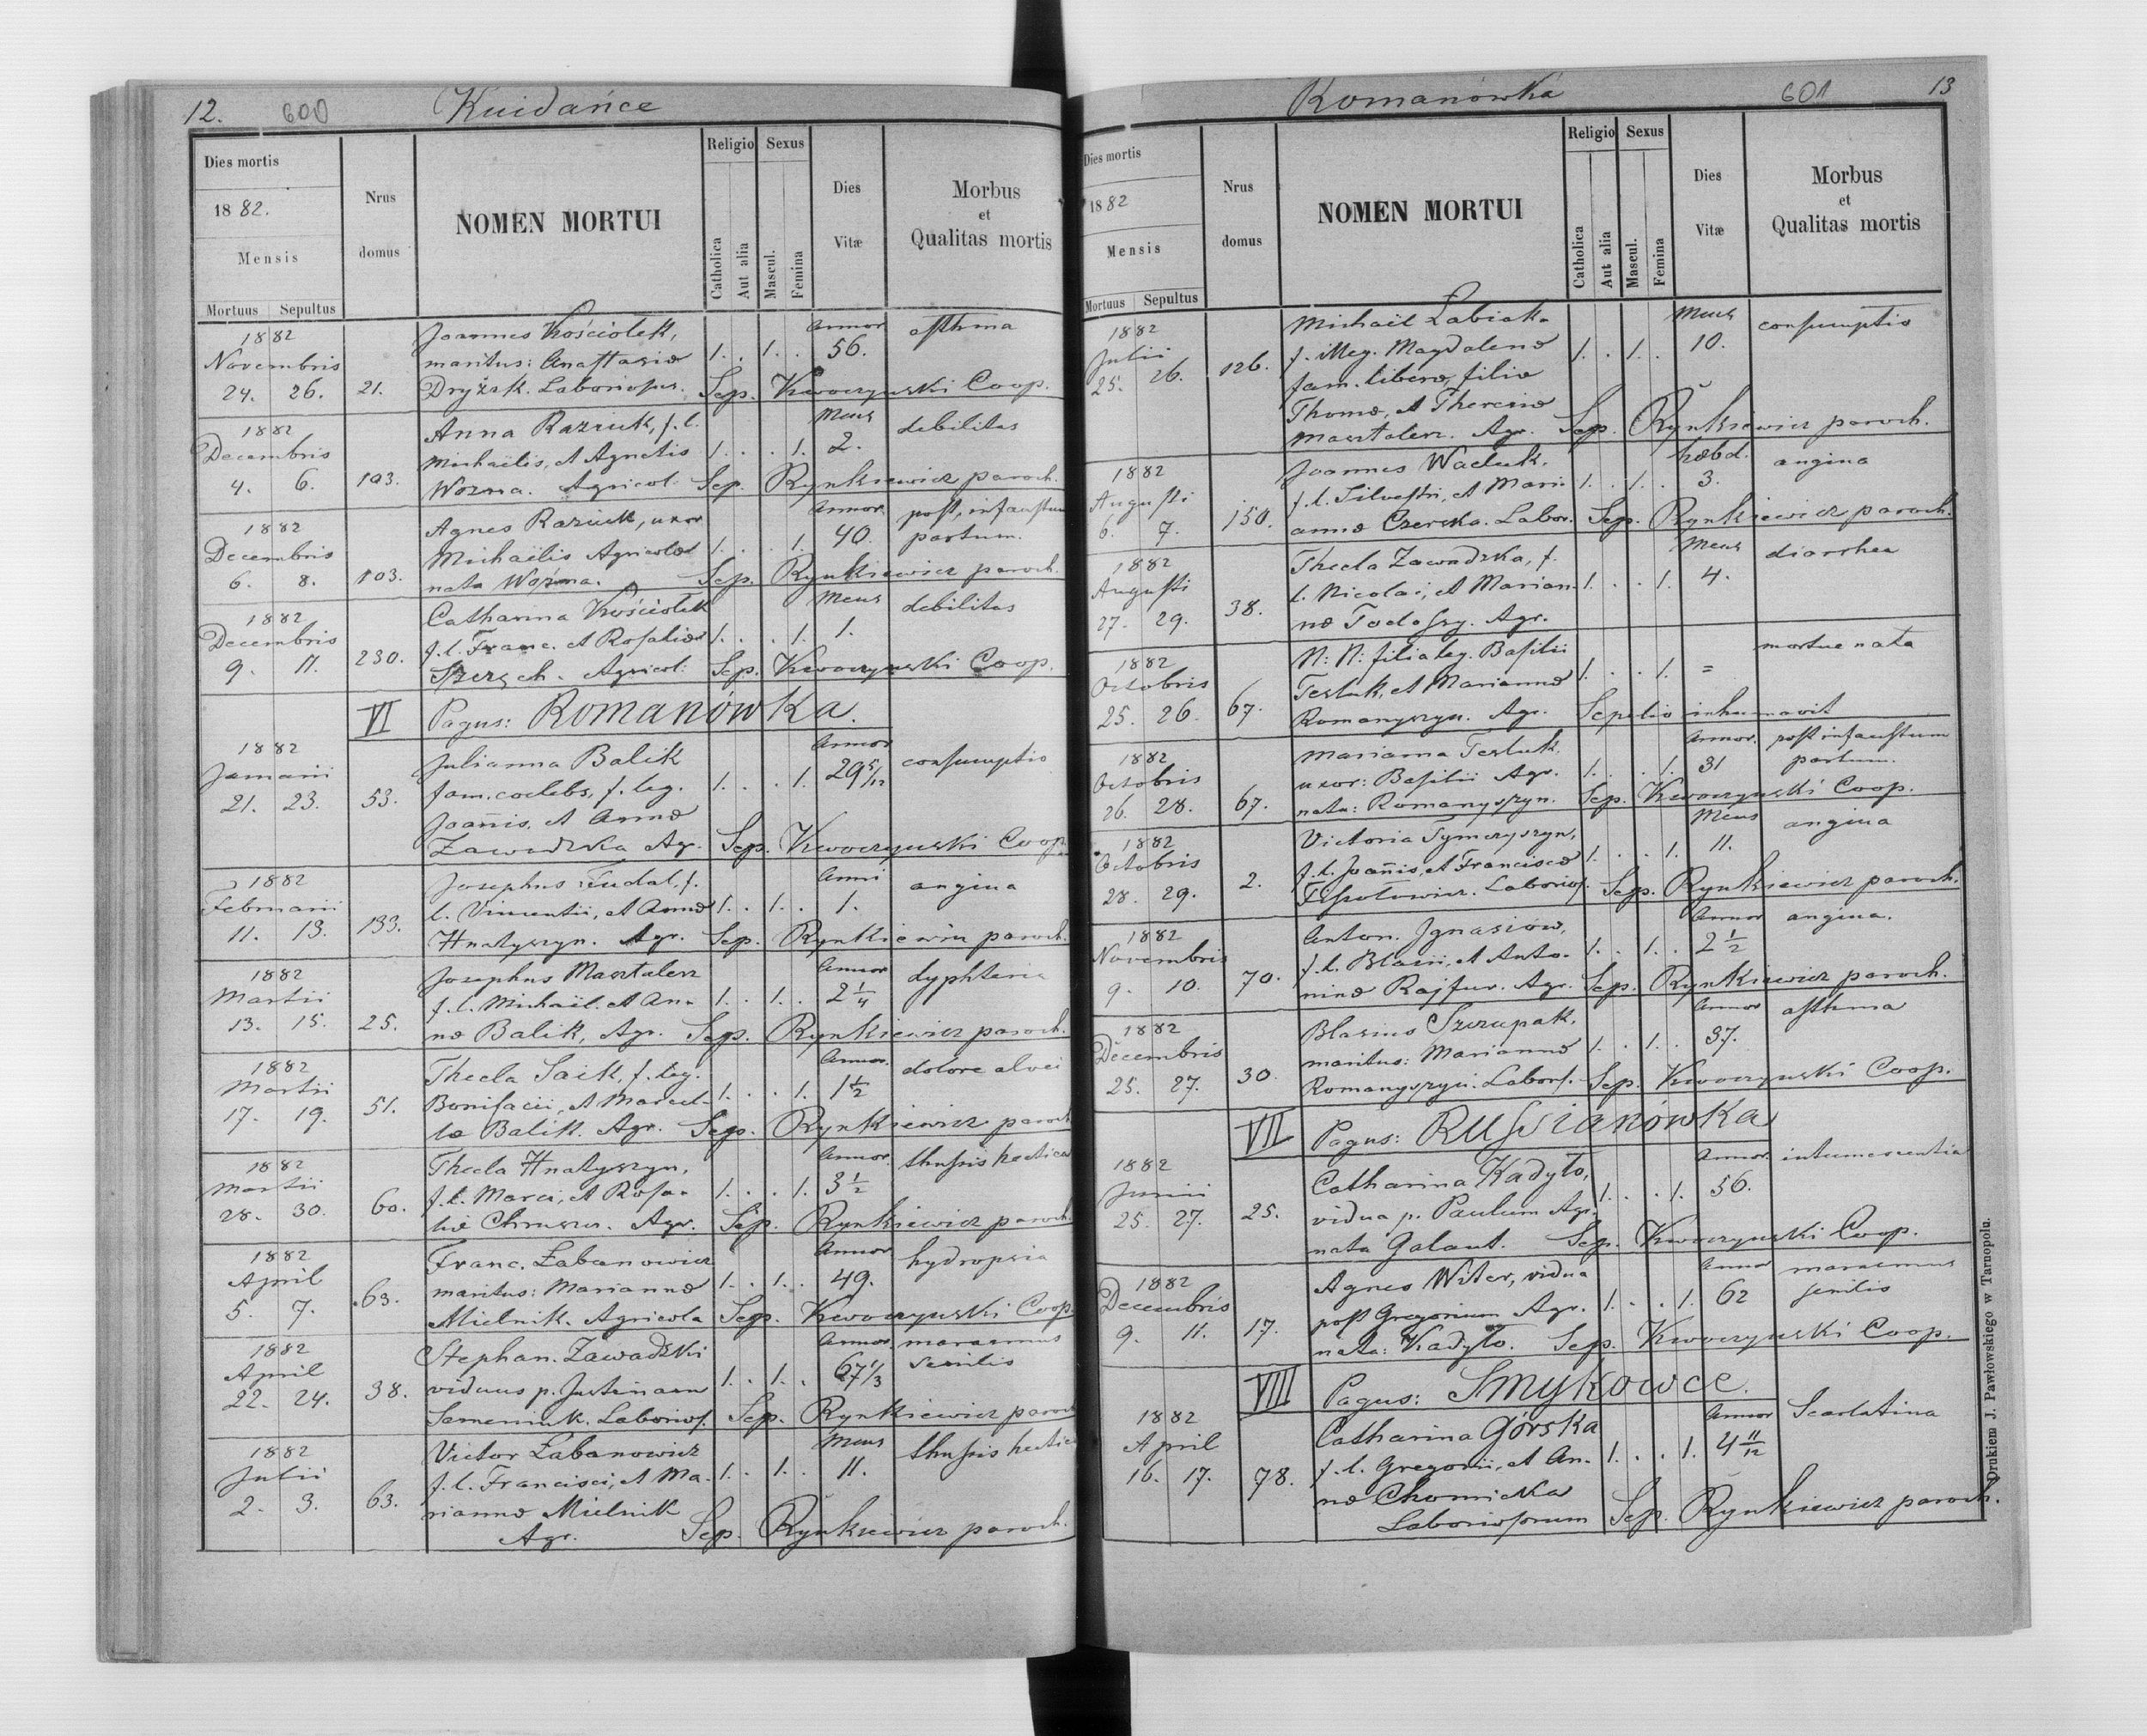 12. 600 Kuidańce
Dies mortis
1882.
Mensis
Mortuus Sepultus
Nrus domus
NOMEN MORTUI
Religio
Catholica
Aut alia
Sexus
Mascul.
Femina
Dies Vitæ
Morbus
et
Qualitas mortis
1882 Joannes Kościołek, Annor asthma
Novembris maritus: Anastasiæ 1. . 1. . 56.
24. 26. 21. Dryżak. Laboriosus. Sep. Kwoczyński Coop.
1882 Anna Raziuk, f. l. Mens debilitas
Decembris Michaëlis, et Agnetis 1. . . 1. 2.
4. 6. 103. Woźna. Agricol. Sep. Rynkiewicz paroch.
1882 Agnes Raziuk, uxor Annor. post infaustum
Decembris Michaëlis Agricolæ 1. . . 1. 40. partum.
6. 8. 103. nata Woźna. Sep. Rynkiewicz paroch.
1882 Catharina Kościołek Mens debilitas
Decembris f. l. Franc. et Rosaliæ 1. . . 1. 1.
9. 11. 230. Agricol: Sep. Kwoczyński Coop.
VI Pagus: Romanówka.
1882 Julianna Balik Annor consumptio
Januarii fam. coelebs, f. leg. 1. . . 1. 29 5/12
21. 23. 53. Joannis, et Annæ
Zawadzka Agr. Sep. Kwoczyński Coop.
1882 Josephus Fudal, f. Anni angina
Februarii l. Vincentii, et Annæ 1. . 1. . 1.
11. 13. 133. Hnatyszyn. Agr. Sep. Rynkiewicz paroch.
1882 Josephus Masztalerz Annor dyphteria
Martii f. l. Michaël. et An- 1. . 1. . 2 1/4
13. 15. 25. næ Balik, Agr. Sep. Rynkiewicz paroch.
1882 Thecla Saik, f. leg. Annor. dolore alvei
Martii Bonifacii, et Marcel- 1. . . 1. 1 1/2
17. 19. 51. læ Balik. Agr. Sep. Rynkiewicz paroch
1882 Thecla Hnatyszyn, Annor. thusis hectica
Martii f. l. Marci, et Rosa- 1. . . 1. 3 1/2
28. 30. 60. liæ Agr. Sep. Rynkiewicz paroch.
1882 Franc. Łabanowicz Annor hydropsia
April maritus: Mariannæ 1. . 1. . 49.
5. 7. 63. Mielnik. Agricola Sep. Kwoczyński Coop.
1882 Stephan. Zawadzki Annor. marasmus
April viduus p. Justinam 1. . 1. . 67 1/3 senilis
22. 24. 38. Semeniuk. Laborios. Sep. Rynkiewicz paroch
1882 Victor Łabanowicz Mens thusis hectica
Julii f. l. Francisci, et Ma- 1. . 1. . 11.
2. 3. 63. riannæ Mielnik
Agr. Sep. Rynkiewicz paroch.
Romanówka 601 13
Dies mortis
1882
Mensis
Mortuus Sepultus
Nrus domus
NOMEN MORTUI
Religio
Catholica
Aut alia
Sexus
Mascul.
Femina
Dies Vitæ
Morbus
et
Qualitas mortis
1882 Michaël Labiak Mens consumptio
Julii f. illeg. Magdalenæ 1. . 1. . 10.
25. 26. 126. fam. liberæ, filiæ
Thomæ, et Theresiæ
Masztalerz. Agr. Sep. Rynkiewicz paroch.
1882 Joannes Waeluk. hebd. angina
Augusti f. l. Silvestri, et Mari- 1. . 1. . 3.
6. 7. 150. annæ Czerska. Labor. Sep. Rynkiewicz paroch.
1882 Thecla Zawadzka, f. Mens diarrhea
Augusti l. Nicolai, et Marian- 1. . . 1. 4.
27. 29. 38. næ Agr.
1882 N: N: filia leg. Basilii mortue nata
Octobris Tesluk, et Mariannæ 1. . . 1. =
25. 26. 67. Romanyszyn. Agr. Sepelio inhumavit
1882 Marianna Tesluk, Annor. post infaustum
Octobris uxor: Basilii Agr. 1. . . 1. 31 partum.
26. 28. 67. nata: Romanyszyn. Sep. Kwoczyński Coop.
1882 Victoria Tymczyszyn, Mens angina
Octobris f. l. Joannis, et Franciscæ 1. . . 1. 11.
28. 29. 2. Laborios. Sep. Rynkiewicz paroch.
1882 Anton. Ignasiów, Annor angina.
Novembris f. l. Blasii, et Anto- 1. . 1. . 2 1/2
9. 10. 70. ninæ Rajfur. Agr. Sep. Rynkiewicz paroch.
1882 Blasius Szczupak, Annor asthma
Decembris maritus: Mariannæ 1. . 1. . 37.
25. 27. 30. Romanyszyn. Labors. Sep. Kwoczyński Coop.
VII Pagus: Russianówka
1882 Catharina Kadyło, Annor. intumescentia
Junii vidua p. Paulum Agr. 1. . . 1. 56.
25. 27. 25. nata Galant. Sep. Kwoczyński Coop.
1882 Agnes Witer, vidua Annor marasmus
Decembris post Gregorium Agr. 1. . . 1. 62 senilis
9. 11. 17. nata: Kadyło. Sep. Kwoczyński Coop.
VIII Pagus: Smykowce.
1882 Catharina Górska Annor Scarlatina
April f. l. Gregorii, et An- 1. . . 1. 4 11/12
16. 17. 78. næ Chomicka
Laboriosorum Sep. Rynkiewicz paroch.
Drukiem J. Pawłowskiego w Tarnopolu.